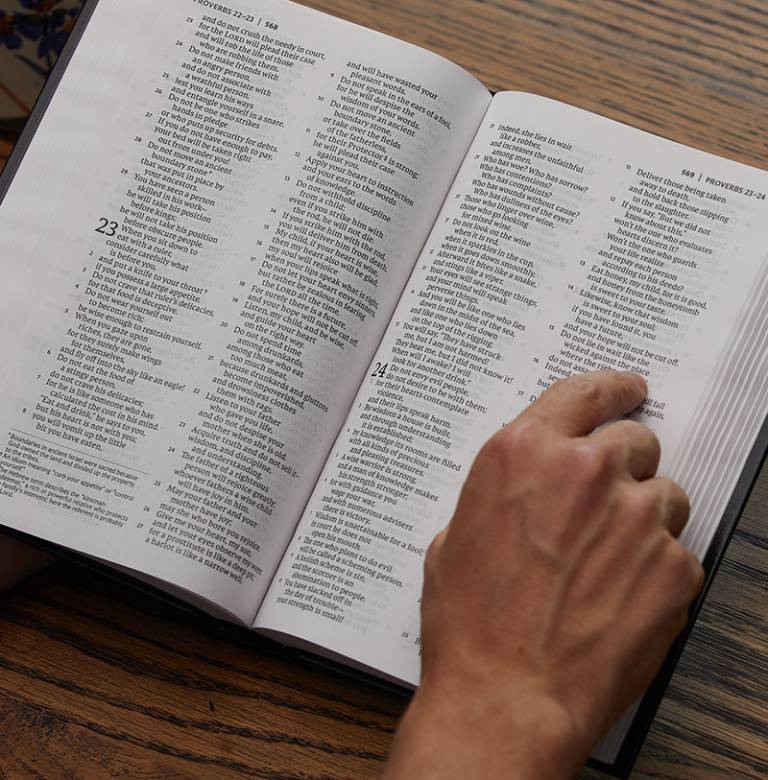 PROVERBS 22–23 | 568
23 and do not crush the needy in court,
for the LORD will plead their case
and will rob the life of those
who are robbing them.
24 Do not make friends with
an angry person,
and do not associate with
a wrathful person,
25 lest you learn his ways
and entangle yourself in a snare.
26 Do not be one who strikes
hands in pledge
or who puts up security for debts.
27 If you do not have enough to pay,
your bed will be taken right
out from under you!
28 Do not move an ancient
boundary stone
that was put in place by
your ancestors.
29 You have seen a person
skilled in his work—
he will take his position
before kings;
he will not take his position
before obscure people.
23 When you sit down to
eat with a ruler,
consider carefully what
is before you,
2 and put a knife to your throat
if you possess a large appetite.
3 Do not crave that ruler's delicacies,
for that food is deceptive.
4 Do not wear yourself out
to become rich;
be wise enough to restrain yourself.
5 When you gaze upon
riches, they are gone,
for they surely make wings
for themselves,
and fly off into the sky like an eagle!
6 Do not eat the food of
a stingy person,
do not crave his delicacies;
7 for he is like someone who has
calculated the cost in his mind.
"Eat and drink," he says to you,
but his heart is not with you;
8 you will vomit up the little
bit you have eaten,
"Boundaries in ancient Israel were sacred because
God owned the land and divided up the property
to the tribes.
An idiom meaning "curb your appetite" or "control
yourself"
The Hebrew term describes the "kinsman-
redeemer," a rich or powerful relative who protects
family's interests; here the referent is probably
Lord.
and will have wasted your
pleasant words.
9 Do not speak in the ears of a fool,
for he will despise the
wisdom of your words.
10 Do not move an ancient
boundary stone,
or take over the fields
of the fatherless,
11 for their Protector is strong;
he will plead their case
against you.
12 Apply your heart to instruction
and your ears to the words
of knowledge.
13 Do not withhold discipline
from a child;
even if you strike him with
the rod, he will not die.
14 If you strike him with the rod,
you will deliver him from death.
15 My child, if your heart is wise,
then my heart also will be glad;
16 my soul will rejoice
when your lips speak what is right.
17 Do not let your heart envy sinners,
but rather be zealous in fearing
the LORD all the time.
18 For surely there is a future,
and your hope will not be cut off.
19 Listen, my child, and be wise,
and guide your heart
on the right way.
20 Do not spend time
among drunkards,
among those who eat
too much meat,
21 because drunkards and gluttons
become impoverished,
and drowsiness clothes
them with rags.
22 Listen to your father
who gave you life,
and do not despise your
mother when she is old.
23 Acquire truth and do not sell it—
wisdom, and discipline,
and understanding.
24 The father of a righteous
person will rejoice greatly;
whoever fathers a wise child
will have joy in him.
25 May your father and your
mother have joy;
may she who bore you rejoice.
26 Give me your heart, my son,
and let your eyes observe my ways;
27 for a prostitute is like a deep pit;
a harlot is like a narrow well.
569 | PROVERBS 23–24
28 Indeed, she lies in wait
like a robber,
and increases the unfaithful
among men.
29 Who has woe? Who has sorrow?
Who has contentions?
Who has complaints?
Who has wounds without cause?
Who has dullness of the eyes?
30 Those who linger over wine,
those who go looking
for mixed wine.
31 Do not look on the wine
when it is red,
when it sparkles in the cup,
when it goes down smoothly.
32 Afterward it bites like a snake,
and stings like a viper.
33 Your eyes will see strange things,
and your mind will speak
perverse things.
34 And you will be like one who lies
down in the midst of the sea,
and like one who lies down
on the top of the rigging.
35 You will say, "They have struck
me, but I am not harmed!
They beat me, but I did not know it!
When will I awake? I will
look for another drink."
24 Do not envy evil people,
do not desire to be with them;
2 for their hearts contemplate
violence,
and their lips speak harm.
3 By wisdom a house is built,
and through understanding
it is established;
4 by knowledge its rooms are filled
with all kinds of precious
and pleasing treasures.
5 A wise warrior is strong,
and a man of knowledge makes
his strength stronger;
6 for with guidance you
wage your war,
and with numerous advisers
there is victory.
7 Wisdom is unattainable for a fool;
in court he does not
open his mouth.
8 The one who plans to do evil
will be called a scheming person.
9 A foolish scheme is sin,
and the scorner is an
abomination to people.
10 You have slacked off in
the day of trouble—
your strength is small!
11 Deliver those being taken
away to death,
and hold back those slipping
to the slaughter.
12 If you say, "But we did not
know about this,"
won't the one who evaluates
hearts discern it?
Won't the one who guards
your life realize
and repay each person
according to his deeds?
13 Eat honey, my child, for it is good,
and honey from the honeycomb
is sweet to your taste.
14 Likewise, know that wisdom
is sweet to your soul;
if you have found it,
you have a future,
and your hope will not be cut off.
15 Do not lie in wait like the
wicked against the place
where the
do not
16 Indeed
will fall
again,
17
25